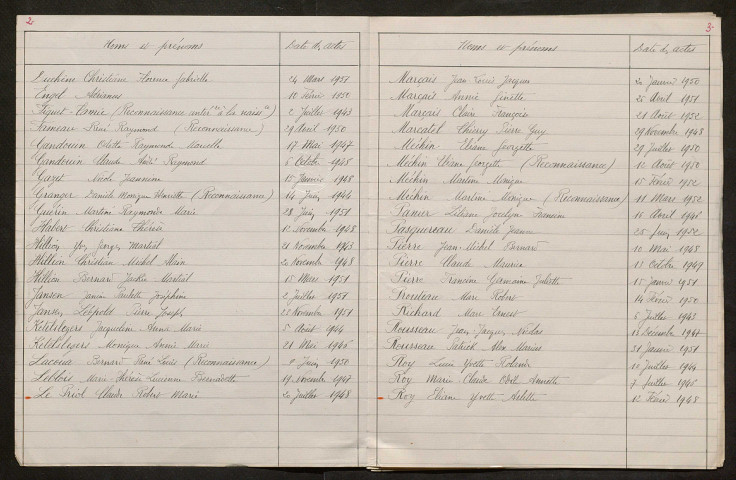 2
Noms et prénoms Date des actes
Christiane Florence Gabrielle 24 Mars 1951
Engel Adrianus 12 Février 1950
(Reconnaissance antér^re à la naiss^ce) 2 Juillet 1943
René Raymond (Reconnaissance) 29 Avril 1950
Gandouin Odette Raymonde Marcelle 17 Mai 1947
Gandouin Claude André Raymond 6 Octobre 1945
Gazyt Nicole Jeannine 15 Janvier 1948
Granger Danièle Monique Henriette (Reconnaissance) 14 Juin 1944
Guérin Martine Raymonde Marie 28 Juin 1951
Habert Christiane Thérèse 12 Novembre 1948
Hillion Guy Georges Martial 21 Novembre 1943
Hillion Christian Michel Alain 20 Novembre 1948
Hillion Bernard Martial 15 Mars 1951
Jansen Janine Paulette Joséphine 2 Juillet 1951
Jansen Léopold Pierre Joseph 28 Novembre 1951
Jacqueline Anna Marie 5 Août 1944
Monique Annie Marie 21 Mai 1946
Lacoua Bernard René Louis (Reconnaissance) Juin 1950
Leblois Marie Thérèse Lucienne Bernadette 19 Novembre 1947
Le Priol Claude Robert Marie 20 Juillet 1948
3
Noms et prénoms Date des actes
Marçais Jean Louis Jacques 20 Janvier 1950
Marçais Annie Ginette 25 Avril 1951
Marçais Claire Françoise 21 Août 1952
Marcadet Thierry Pierre Guy 29 Novembre 1948
Méchin Eliane Georgette 29 Juillet 1950
Méchin Eliane Georgette (Reconnaissance) 12 Août 1950
Méchin Martine Monique 15 Février 1952
Méchin Martine Monique (Reconnaissance) 11 Mars 1952
Panier Liliane Jocelyne Francine 16 Avril 1946
Pasquereau Danièle Jeanne 25 Juin 1952
Pierre Jean-Michel Bernard 10 Mai 1948
Pierre Claude Maurice 13 Octobre 1949
Pierre Francine Germaine Juliette 15 Janvier 1951
Marc Robert 14 Février 1950
Richard Marc Ernest 6 Juillet 1943
Rousseau Jean-Jacques Nicolas 18 Décembre 1947
Rousseau Patrick Alex Marius 31 Janvier 1951
Roy Yvette Rolande 10 Juillet 1944
Roy Marie Claire Odile Annette 7 Juillet 1946
Roy Eliane Yvette Arlette 12 Février 1948